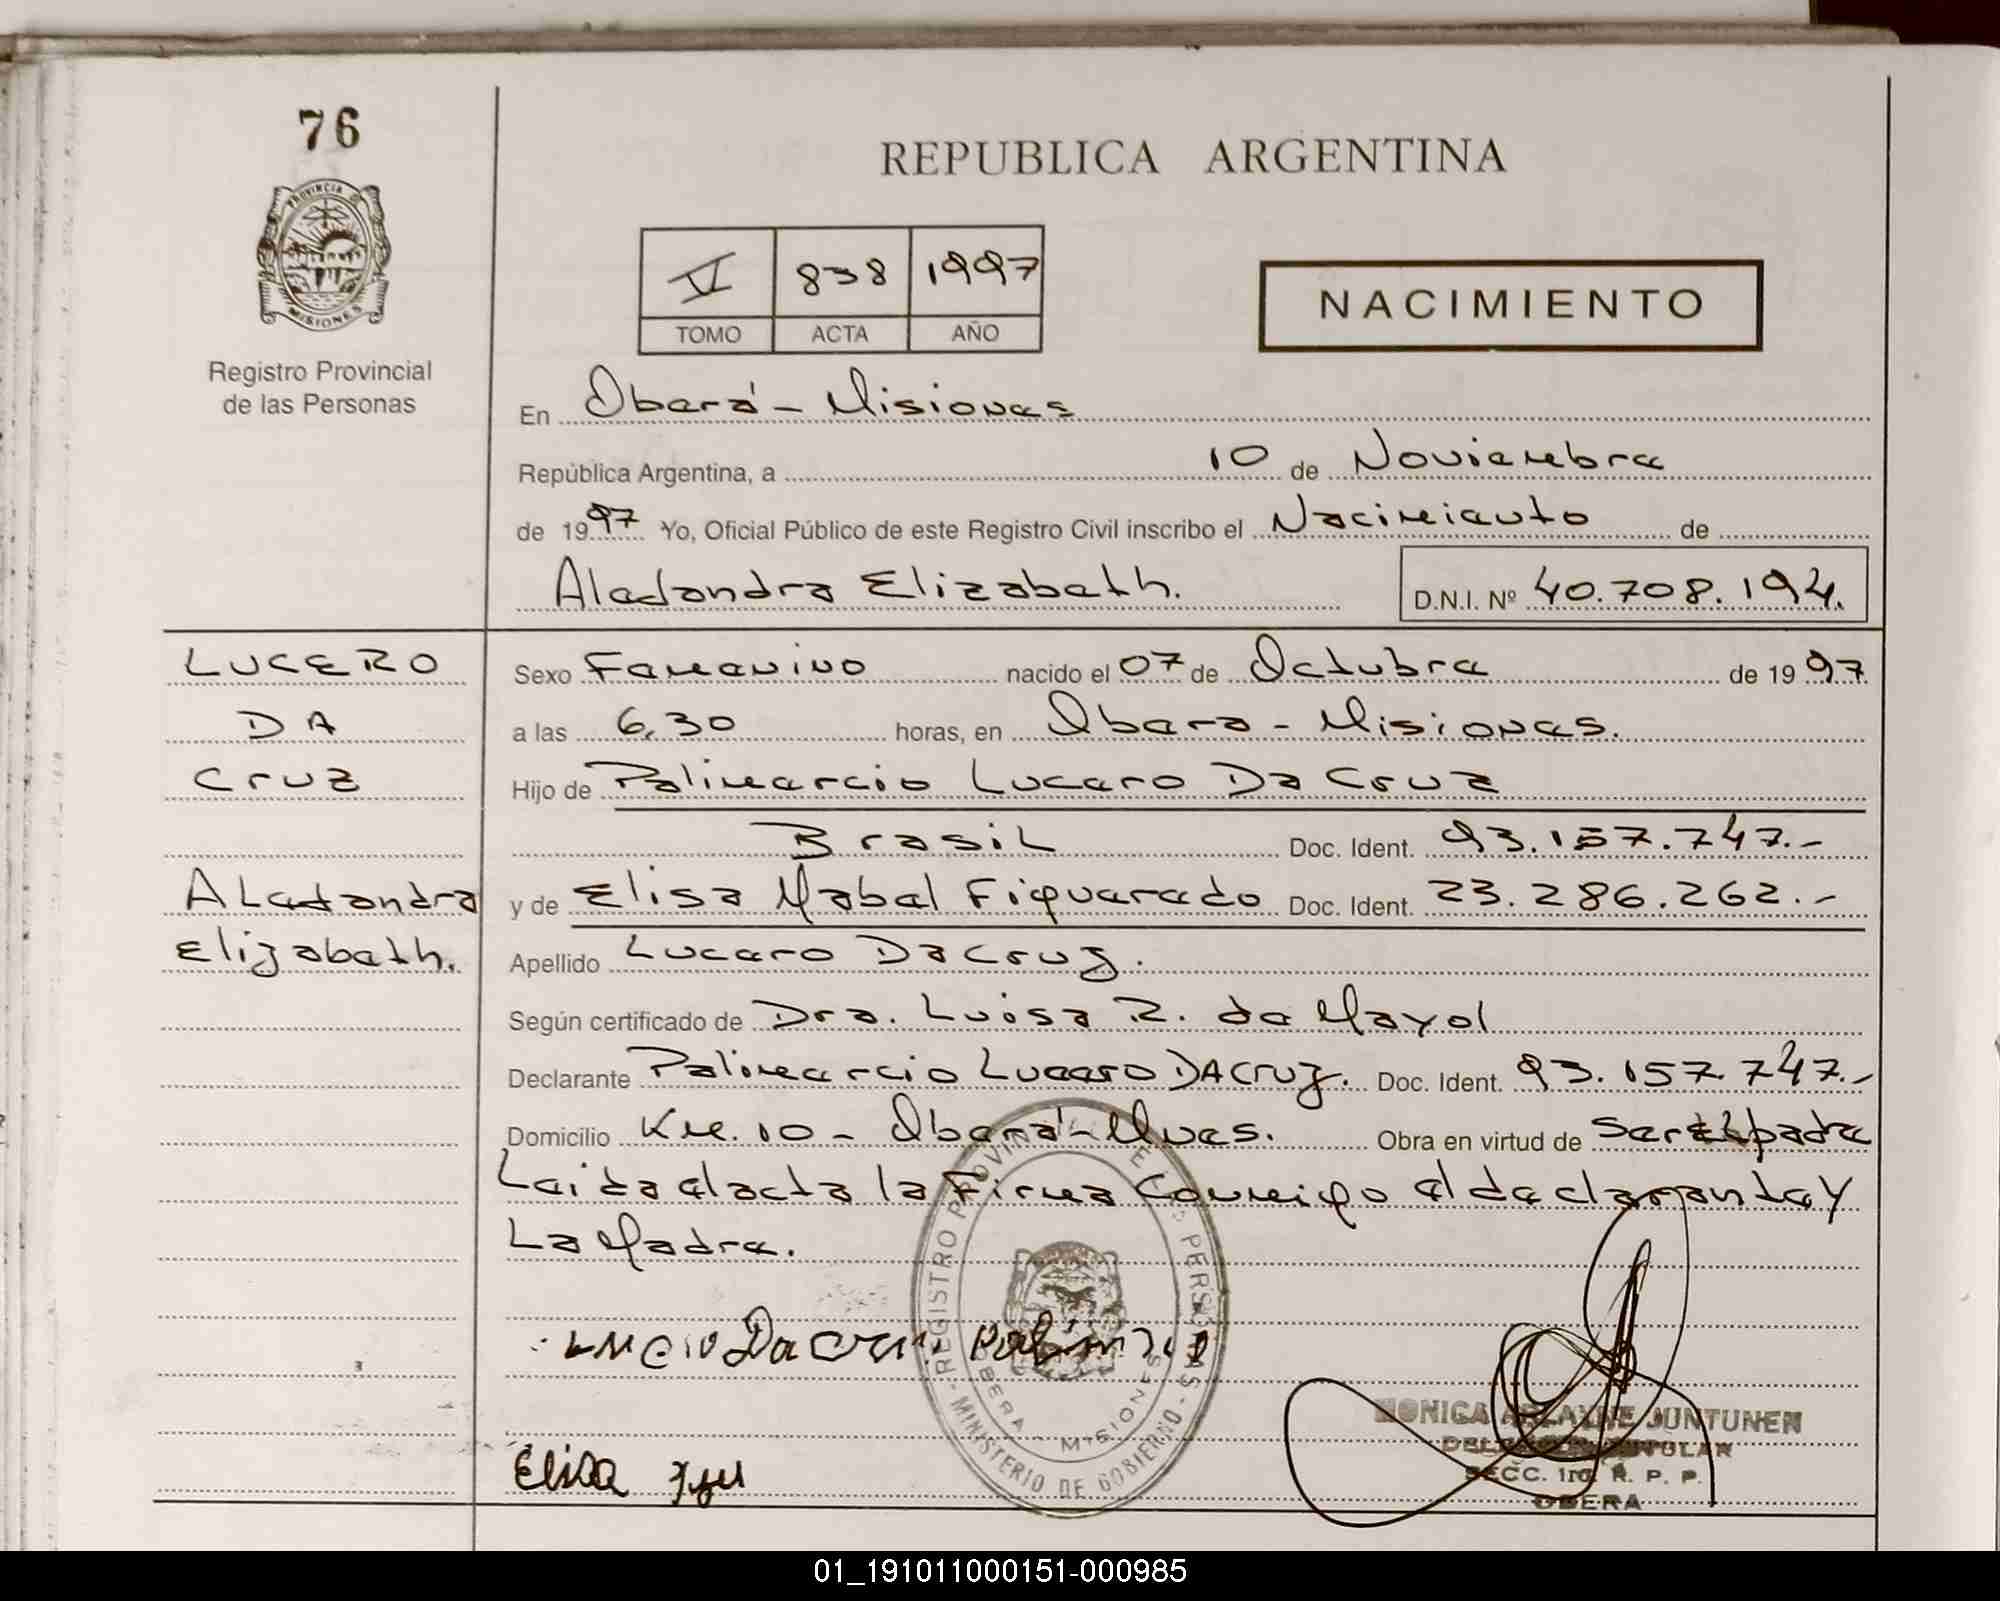 76
PROVINCIA
MISIONES
Registro Provincial
de las Personas
REPUBLICA ARGENTINA
VI 838 1997
TOMO ACTA AÑO
NACIMIENTO
En Oberá - Misiones
República Argentina, a 10 de Noviembre
de 1997 Yo, Oficial Público de este Registro Civil inscribo el Nacimiento de
Alejandra Elizabeth. D.N.I. Nº 40.708.194.
LUCERO
DA
CRUZ
Alejandra
Elizabeth.
Sexo Femenino nacido el 07 de Octubre de 1997
a las 6,30 horas, en Obera - Misiones.
Hijo de Palimercio Lucero Da Cruz
Brasil Doc. Ident. 93.157.747.-
y de Elisa Mabel Figueredo Doc. Ident. 23.286.262.-
Apellido Lucero Da Cruz.
Según certificado de Dra. Luisa R. de Mayol
Declarante Palimercio Lucero DACruz. Doc. Ident. 93.157.747.-
Domicilio Km. 10 - Oberá - Mnes. Obra en virtud de Ser el padre
Leida el acta la Firma conmigo el declarante y
La Madre.
REGISTRO PROVINCIAL DE LAS PERSONAS
MINISTERIO DE GOBIERNO
OBERA - MISIONES
Elisa
MONICA ARLAYNE JUNTUNEN
SECC. 1ra. R. P. P.
OBERA
01_191011000151-000985